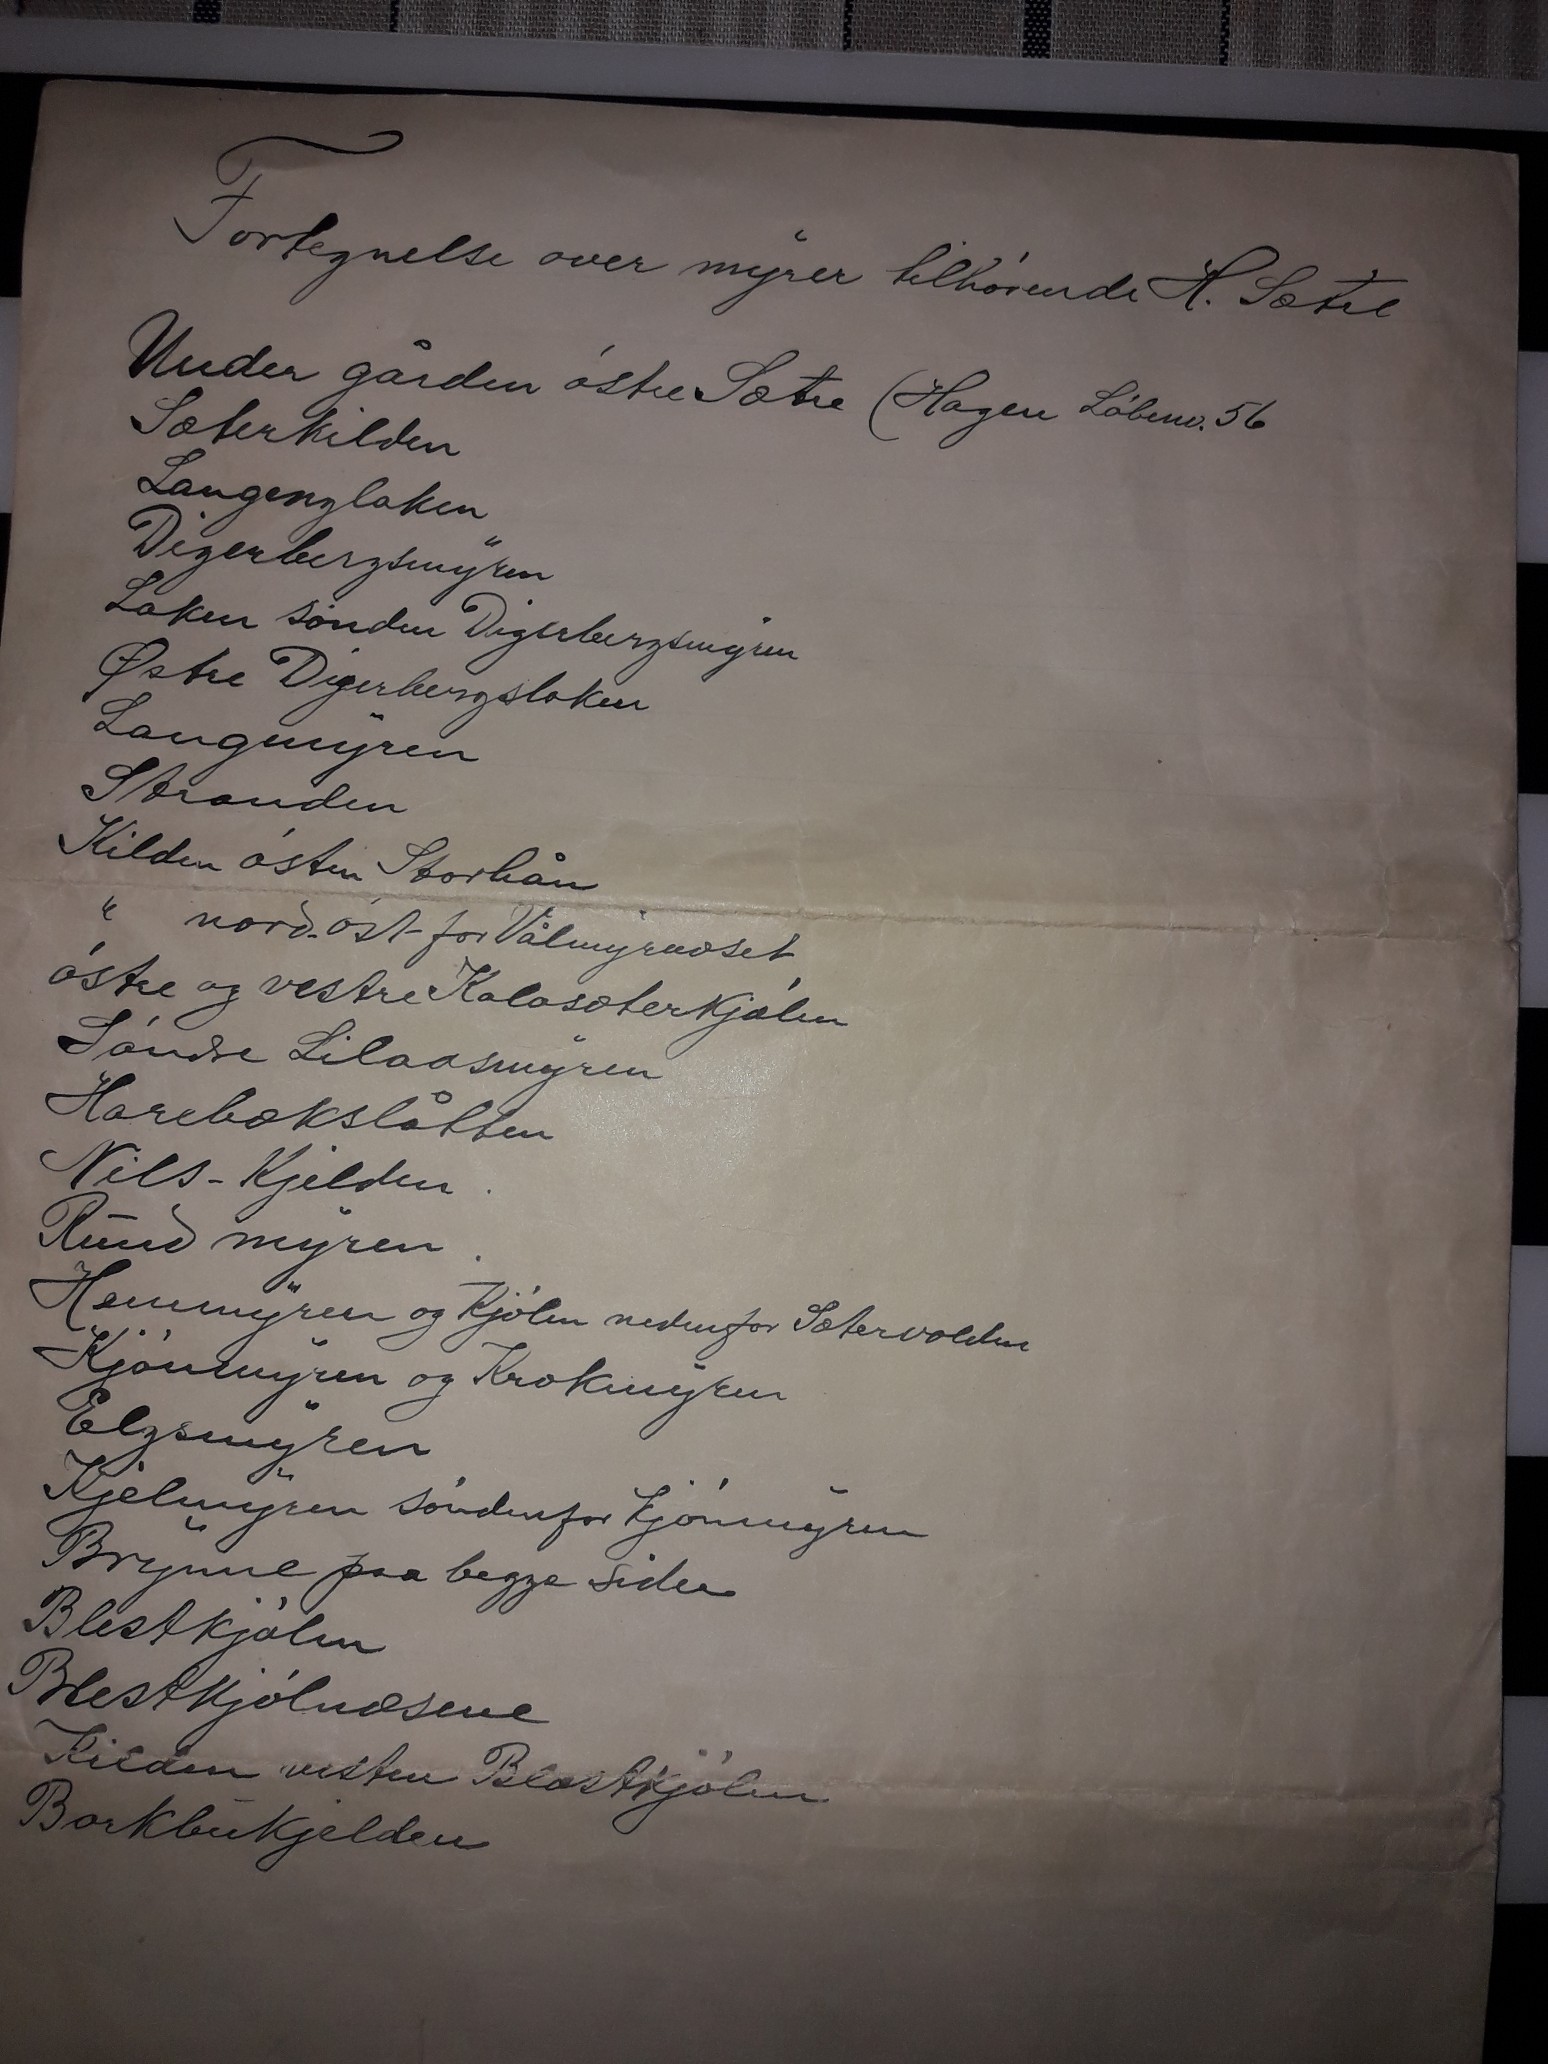 Fortegnelse over myrer tilhørende H. Sætre
Under gården østre Sætre (Hagen Løbenr. 56
Sæterkilden
Langengloken
Digerbergsmyren
Loken sønden Digerbergsmyren
Østre Digerbergsloken
Langmyren
Stranden
Kilden østen Storhån
" nord-øst for Vålmyrnæset
østre og vestre Kolosæterkjølen
Søndre Lilaasmyren
Harebækslåtten
Nils-Kjelden.
Rund myren.
Hemmyren og Kjølen nedenfor Sætervolden
Kjønmyren og Krokmyren
Elgsmyren
Kjelmyren søndenfor Kjønmyren
Brynne paa begge sider
Blestkjølen
Blestkjølnæsene
Kilden vesten Blæstkjølen
Borkbukjelden